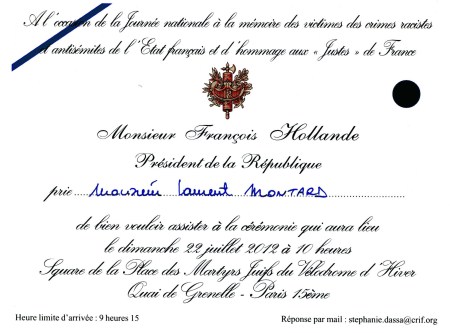 A l'occasion de la Journée nationale à la mémoire des victimes des crimes racistes
et antisémites de l'Etat français et d'hommage aux « Justes » de France
Monsieur François Hollande
Président de la République
prie Monsieur Laurent MONTARD
de bien vouloir assister à la cérémonie qui aura lieu
le dimanche 22 juillet 2012 à 10 heures
Square de la Place des Martyrs Juifs du Vélodrome d'Hiver
Quai de Grenelle - Paris 15ème
Heure limite d'arrivée : 9 heures 15
Réponse par mail : stephanie.dassa@crif.org